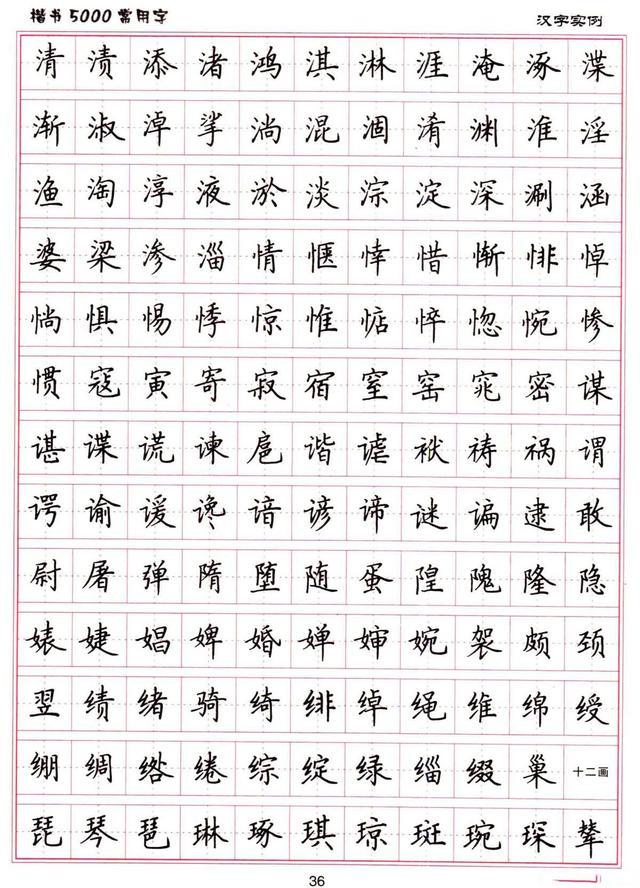 楷书5000常用字 汉字实例
清 渍 添 渚 鸿 淇 淋 涯 淹 涿 渫
渐 淑 淖 挲 淌 混 涸 淆 渊 淮 淫
渔 淘 淳 液 淤 淡 淙 淀 深 涮 涵
婆 梁 渗 淄 情 惬 悻 惜 惭 悱 悼
惝 惧 惕 悸 惊 惟 惦 悴 惚 惋 惨
惯 寇 寅 寄 寂 宿 窒 窑 窕 密 谋
谌 谍 谎 谏 扈 谐 谑 袱 祷 祸 谓
谔 谕 谖 谗 谙 谚 谛 谜 谝 逮 敢
尉 屠 弹 隋 堕 随 蛋 隍 隗 隆 隐
婊 婕 娼 婢 婚 婵 婶 婉 袈 颇 颈
翌 绩 绪 骑 绮 绯 绰 绳 维 绵 绶
绷 绸 绺 绻 综 绽 绿 缁 缀 巢 十二画
琵 琴 琶 琳 琢 琪 琼 斑 琬 琛 辇
36